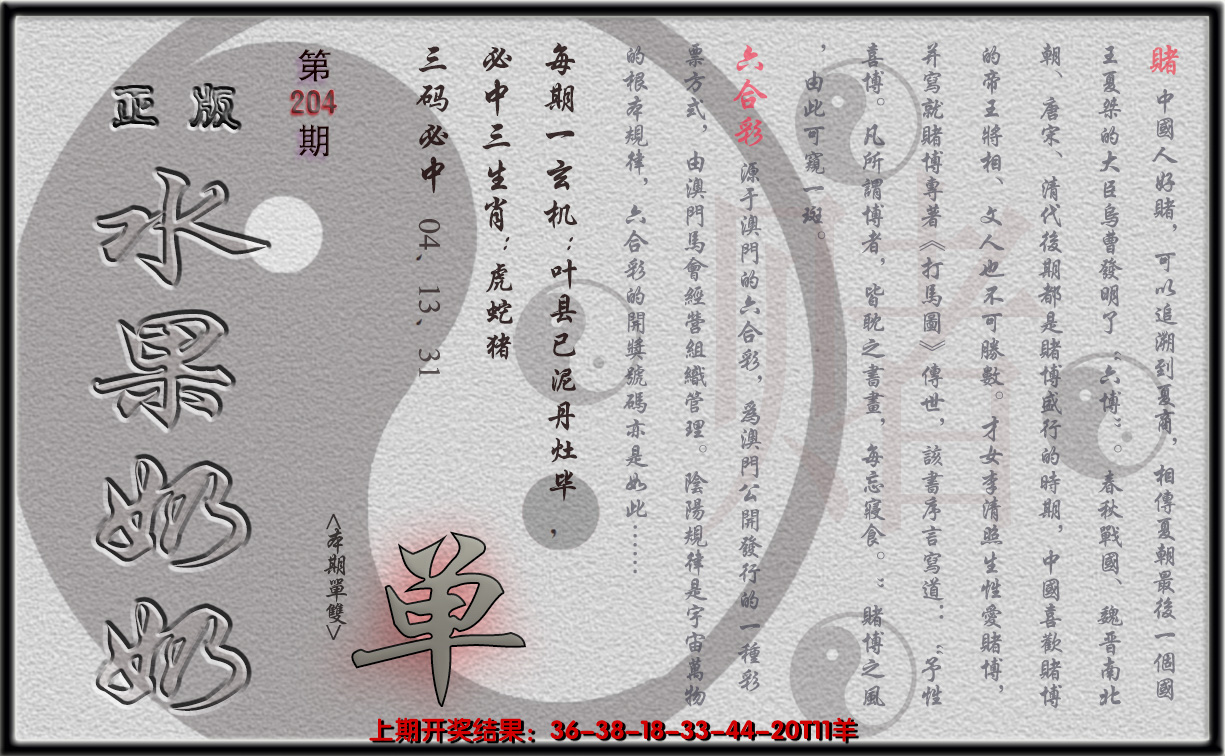 賭 中國人好賭，可以追溯到夏商，相傳夏朝最後一個國
王夏桀的大臣烏曹發明了“六博”。春秋戰國、魏晋南北
朝、唐宋、清代後期都是賭博盛行的時期，中國喜歡賭博
的帝王將相、文人也不可勝數。才女李清照生性愛賭博，
并寫就賭博專著《打馬圖》傳世，該書序言寫道：“予性
喜博。凡所謂博者，皆耽之書畫，每忘寢食。”賭博之風
，由此可窺一斑。
六合彩 源于澳門的六合彩，爲澳門公開發行的一種彩
票方式，由澳門馬會經營組織管理。陰陽規律是宇宙萬物
的根本規律，六合彩的開獎號碼亦是如此……
每期一玄机：叶县已泥丹灶毕，
必中三生肖：虎蛇猪
三码必中 04、13、31
单
<本期單雙>
第204期
正版
水果奶奶
賭
上期开奖结果：36-38-18-33-44-20T11羊